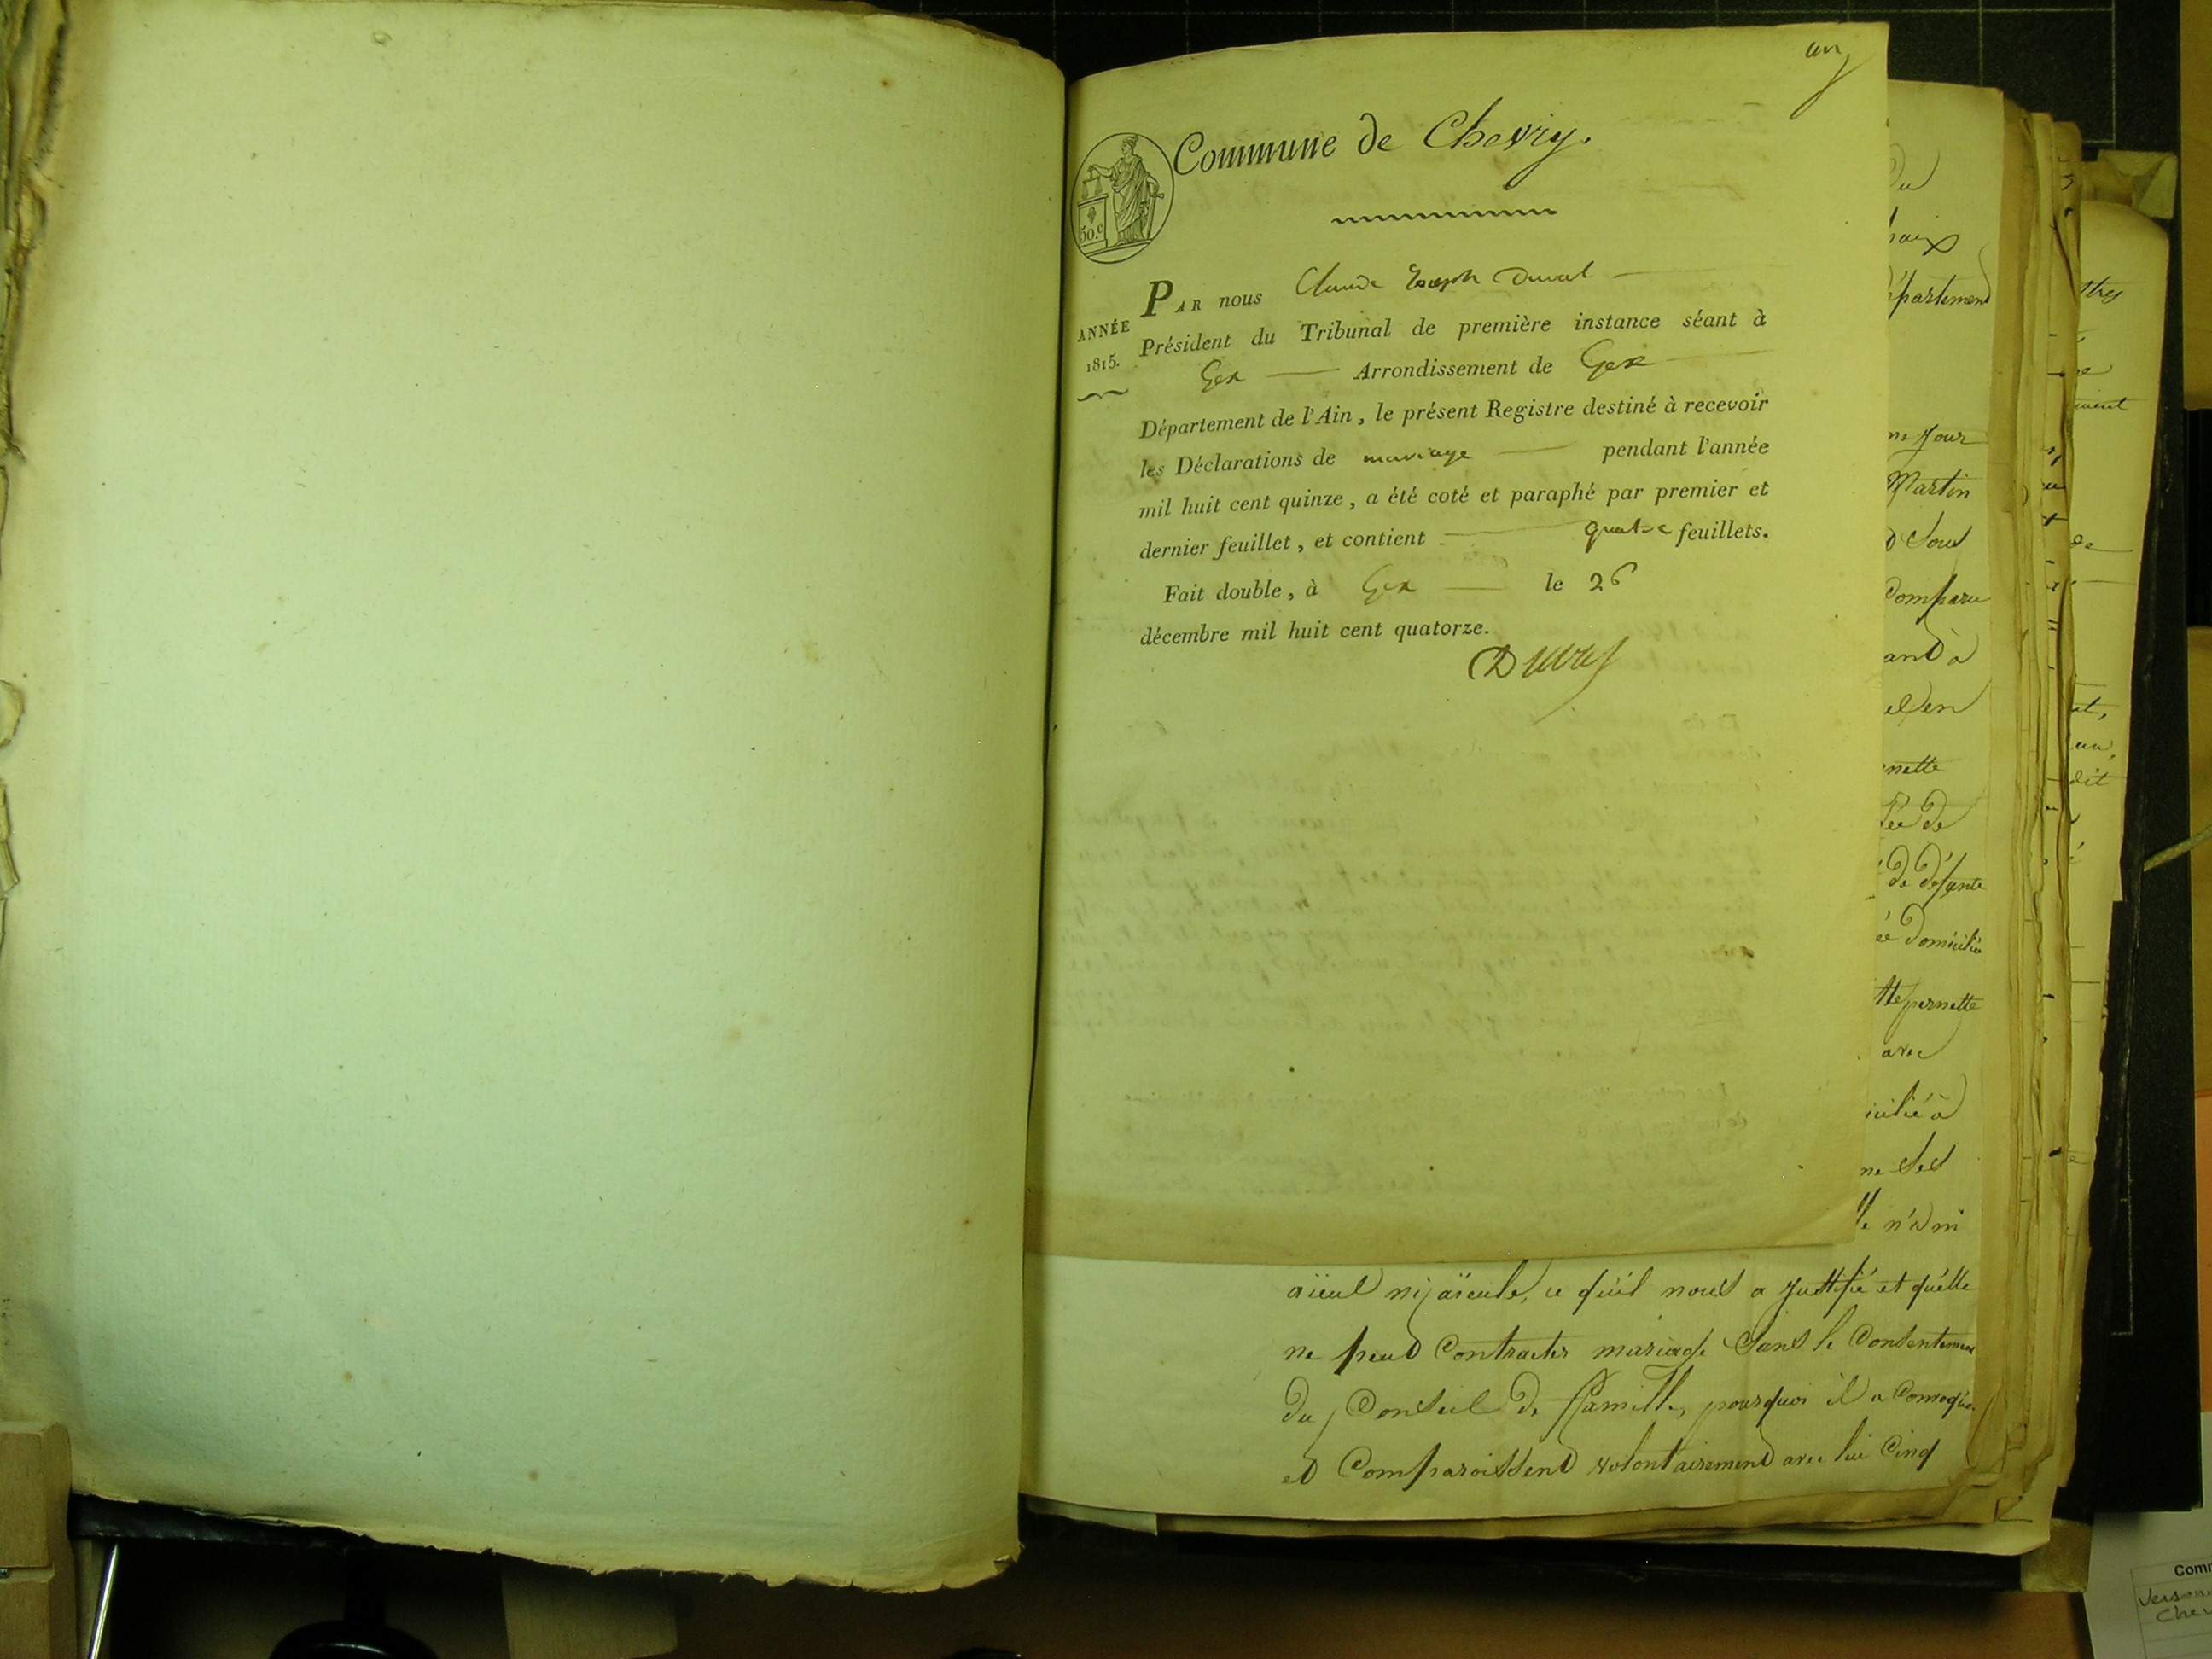 un
Commune de Chevry.
50.c
ANNÉE
1815.
PAR nous Claude Joseph Duval
Président du Tribunal de première instance séant à
Gex Arrondissement de Gex
Département de l'Ain, le présent Registre destiné à recevoir
les Déclarations de mariage pendant l'année
mil huit cent quinze, a été coté et paraphé par premier et
dernier feuillet, et contient quatre feuillets.
Fait double, à Gex le 26
décembre mil huit cent quatorze.
Duval
Du
haix
épartement
me Jour
Martin
d Sous
Comparu
and à
el en
nette
ée de
de défunte
ée Domiciliée
tte pernette
avec
icilié à
ne Ses
n'a ni
aïeul ni aïeule, ce qu'il nous a Justifié et qu'elle
ne peut Contracter mariage Sans le Consentement
du Conseil de famille, pourquoi il a Convoqué
et Comparoissent volontairement avec lui Cinq
Comm
Chev